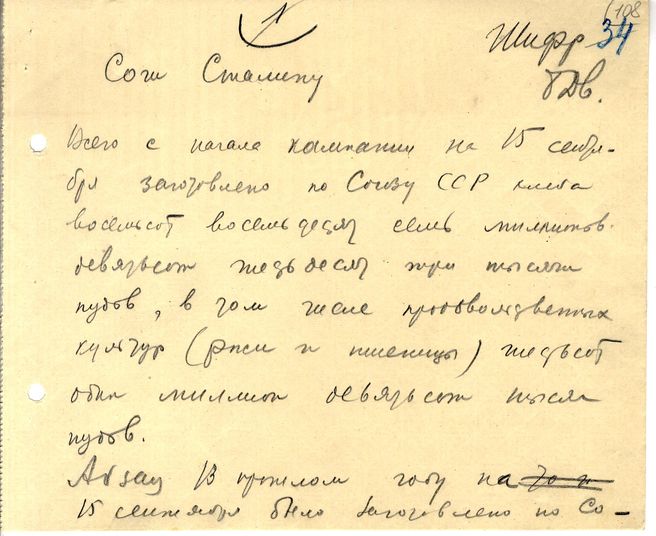 (108
1
Шифр 34
Сочи Сталину
Всего с начала кампании на 15 сентя-
бря заготовлено по Союзу ССР хлеба
восемьсот восемьдесят семь миллионов
девятьсот шестьдесят три тысячи
пудов, в том числе продовольственных
культур (ржи и пшеницы) шестьсот
один миллион девятьсот тысяч
пудов.
Абзац В прошлом году на
15 сентября было заготовлено по Со-